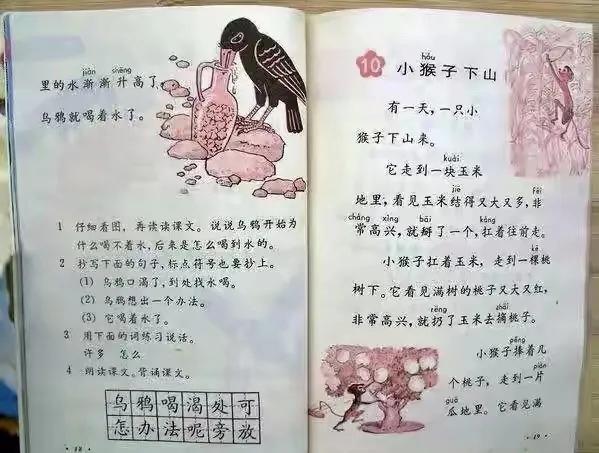 jiàn shēng
里的水渐渐升高了,
乌鸦就喝着水了。
1 仔细看图,再读读课文。说说乌鸦开始为
什么喝不着水,后来是怎么喝到水的。
2 抄写下面的句子,标点符号也要抄上。
(1) 乌鸦口渴了,到处找水喝。
(2) 乌鸦想出一个办法。
(3) 它喝着水了。
3 用下面的词练习说话。
许多 怎么
4 朗读课文。背诵课文。
乌鸦喝渴处可
怎办法呢旁放
·18·
10 小猴子下山
hóu
有一天,一只小
猴子下山来。
kuài
它走到一块玉米
jiē fēi
地里,看见玉米结得又大又多,非
cháng xìng bāi káng
常高兴,就掰了一个,扛着往前走。
kē
小猴子扛着玉米,走到一棵桃
树下。它看见满树的桃子又大又红,
rēng zhāi
非常高兴,就扔了玉米去摘桃子。
pěng
小猴子捧着几
piàn
个桃子,走到一片
guā
瓜地里。它看见满
·19·